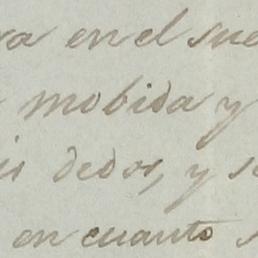 va en el sue
mobida y
is dedos, y s
en cuanto s